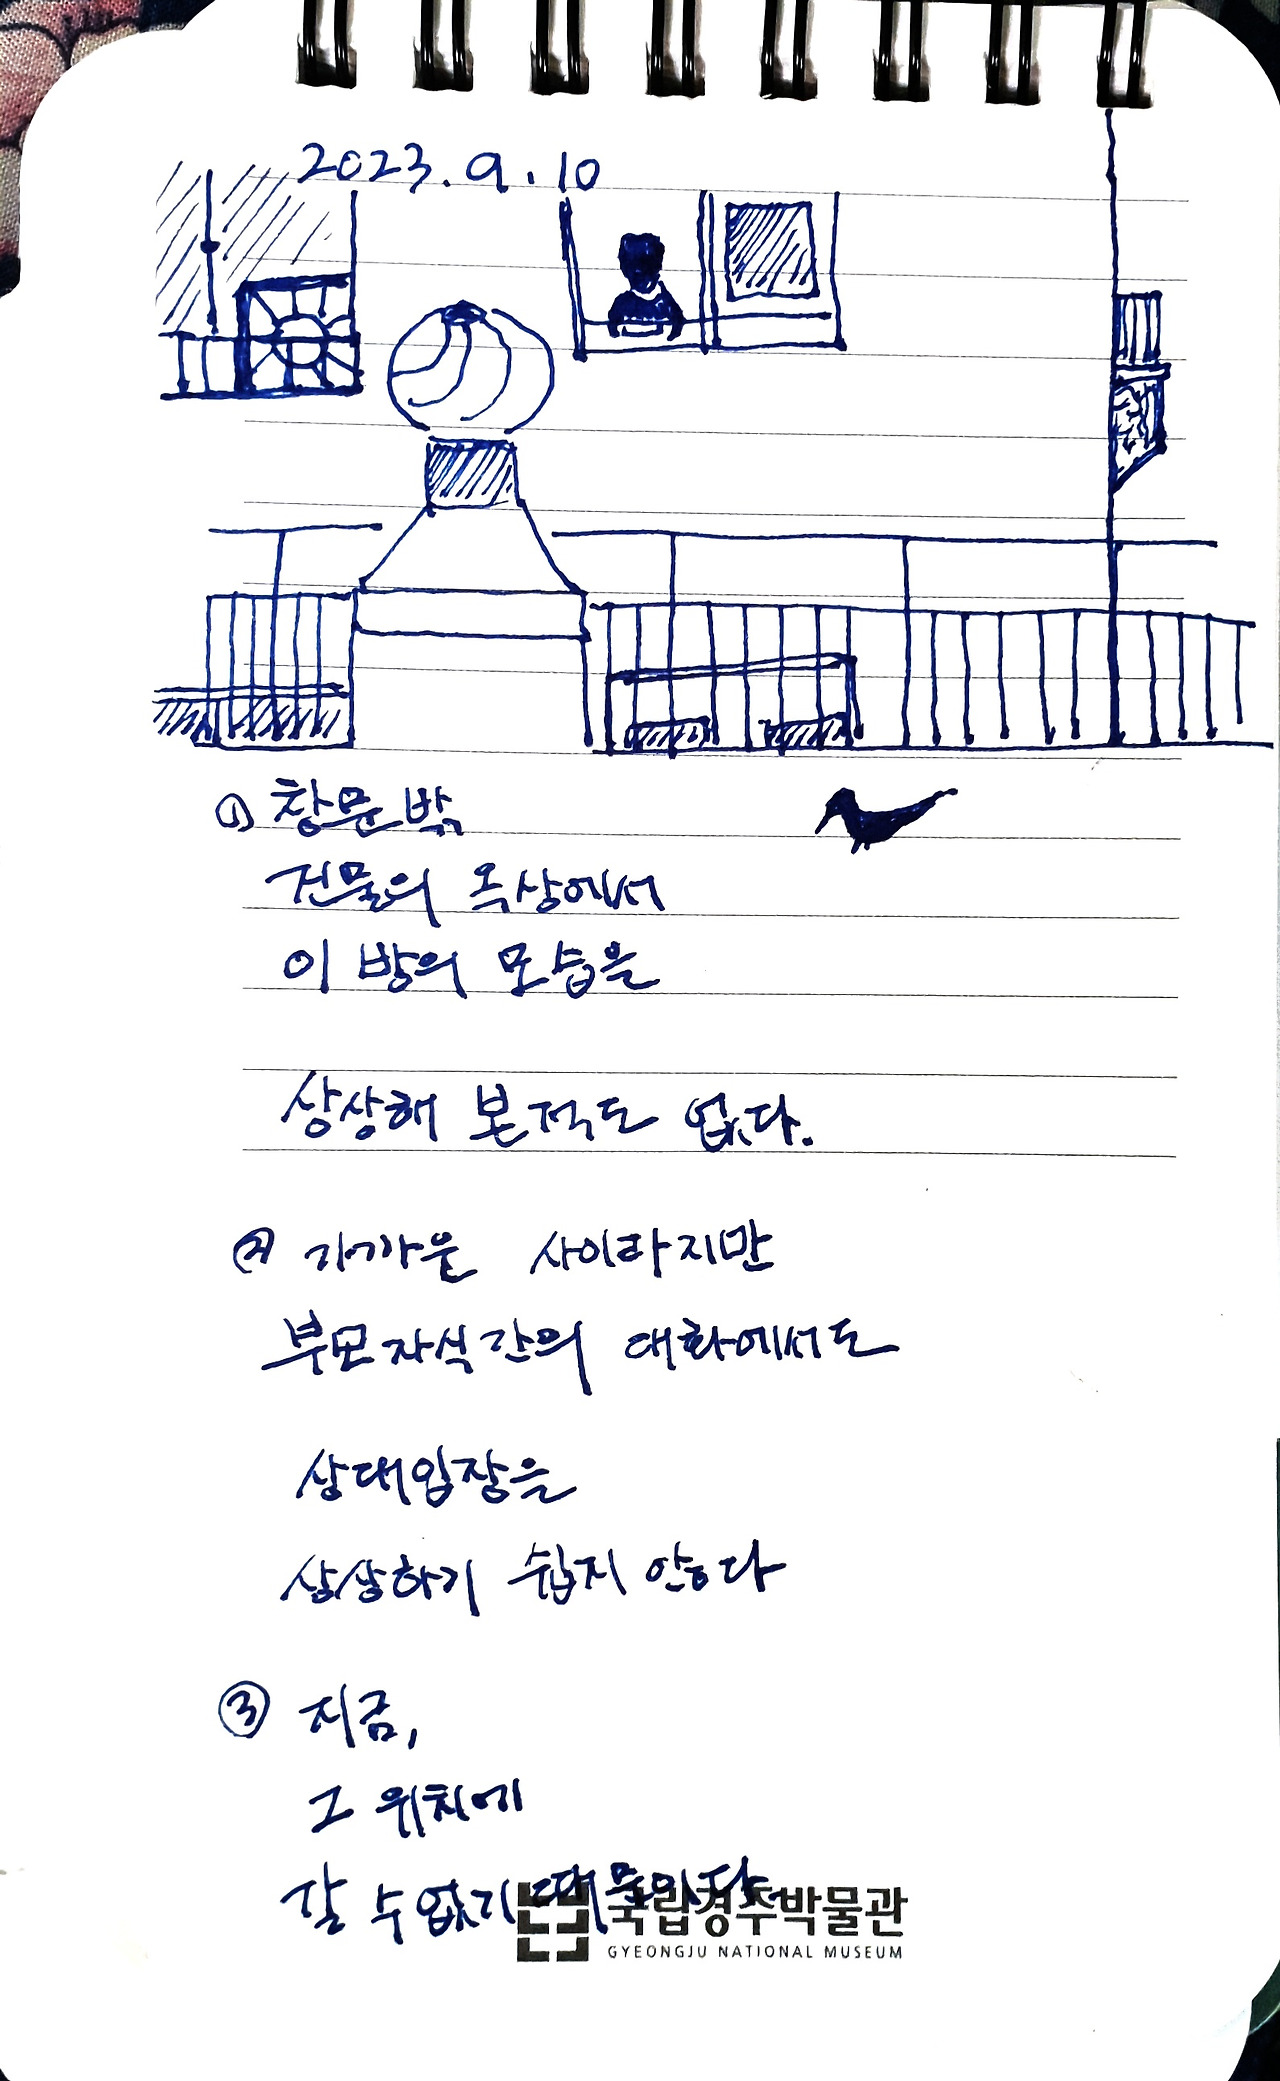 2023.9.10
① 창문밖
건물의 옥상에서
이 방의 모습을
상상해 본적도 없다.
② 가까운 사이라지만
부모자식간의 대화에서도
상대입장을
상상하기 쉽지 않다
③ 지금,
그 위치에
갈 수 없기 때문이다.
국립경주박물관
GYEONGJU NATIONAL MUSEUM